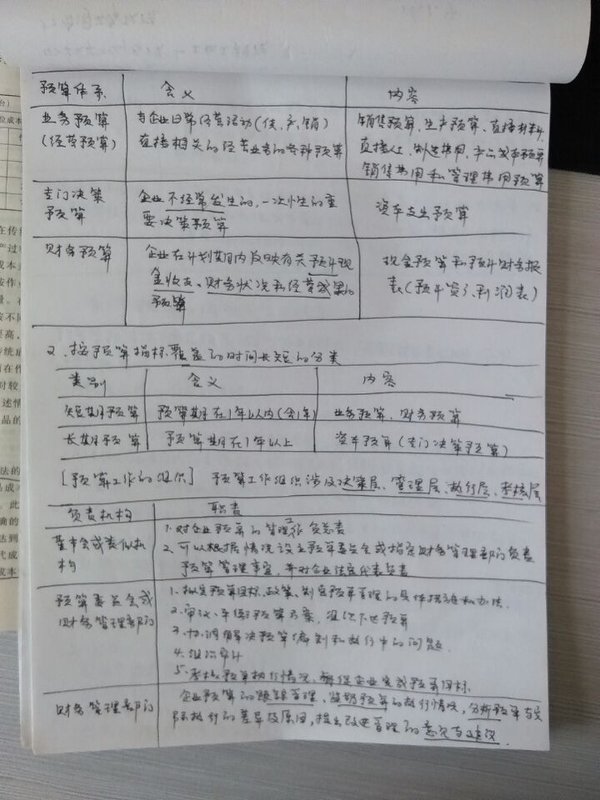 预算体系 含义 内容
业务预算 与企业日常经营活动(供、产、销) 销售预算、生产预算、直接材料、
(经营预算) 直接相关的经营业务的各种预算 直接人工、制造费用、产品成本预算
销售费用和管理费用预算
专门决策 企业不经常发生的、一次性的重 资本支出预算
预算 要决策预算
财务预算 企业在计划期内反映有关预计现 现金预算和预计财务报
金收支、财务状况和经营成果的 表(预计资、利润表)
预算
2. 按预算指标覆盖的时间长短的分类
类别 含义 内容
短期预算 预算期在1年以内(含1年) 业务预算、财务预算
长期预算 预算期在1年以上 资本预算(专门决策预算)
[预算工作的组织] 预算工作组织涉及决策层、管理层、执行层、考核层
负责机构 职责
董事会或类似机 1. 对企业预算的管理工作负总责
构 2. 可以根据情况设立预算委员会或指定财务管理部门负责
预算管理事宜,并对企业法定代表负责
预算委员会或 1. 拟定预算目标、政策、制定预算管理的具体措施和办法.
财务管理部门 2. 审议、平衡预算方案,组织下达预算
3. 协调解决预算编制和执行中的问题
4. 组织审计
5. 考核预算执行情况、督促企业完成预算目标.
财务管理部门 企业预算的跟踪管理、监督预算的执行情况,分析预算与实
际执行的差异及原因,提出改进管理的意见与建议.